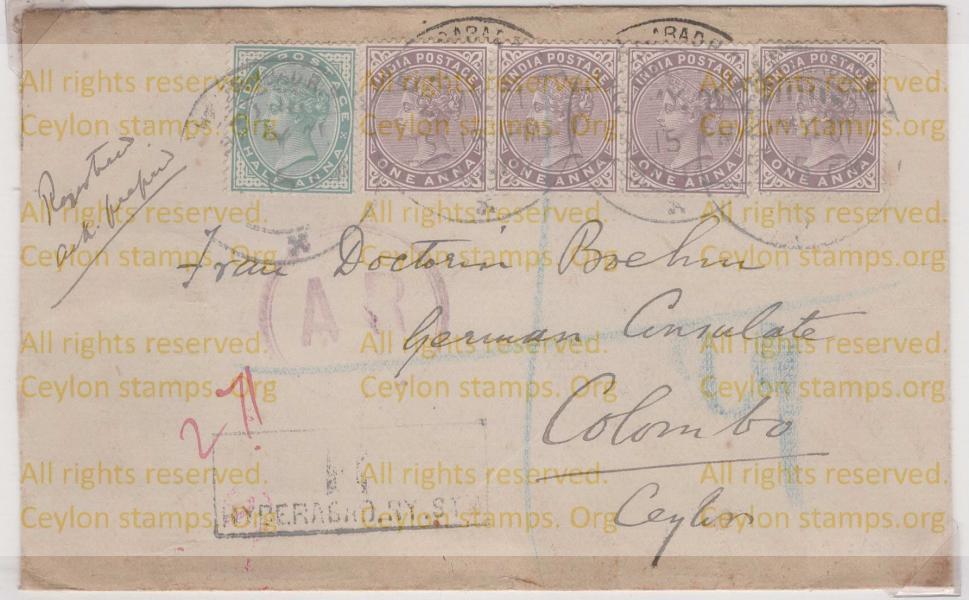 INDIA POSTAGE
HALF ANNA
INDIA POSTAGE
ONE ANNA
INDIA POSTAGE
ONE ANNA
INDIA POSTAGE
ONE ANNA
INDIA POSTAGE
ONE ANNA
Registered
Frau Doctorin Boehm
German Consulate
Colombo
Ceylon
A R
27
R
HYDERABAD.RY.ST
All rights reserved. All rights reserved. All rights reserved.
Ceylon stamps. Org Ceylon stamps. Org Ceylon stamps.org
All rights reserved. All rights reserved. All rights reserved.
Ceylon stamps. Org Ceylon stamps. Org Ceylon stamps.org
All rights reserved. All rights reserved. All rights reserved.
Ceylon stamps. Org Ceylon stamps. Org Ceylon stamps.org
All rights reserved. All rights reserved. All rights reserved.
Ceylon stamps. Org Ceylon stamps. Org Ceylon stamps.org